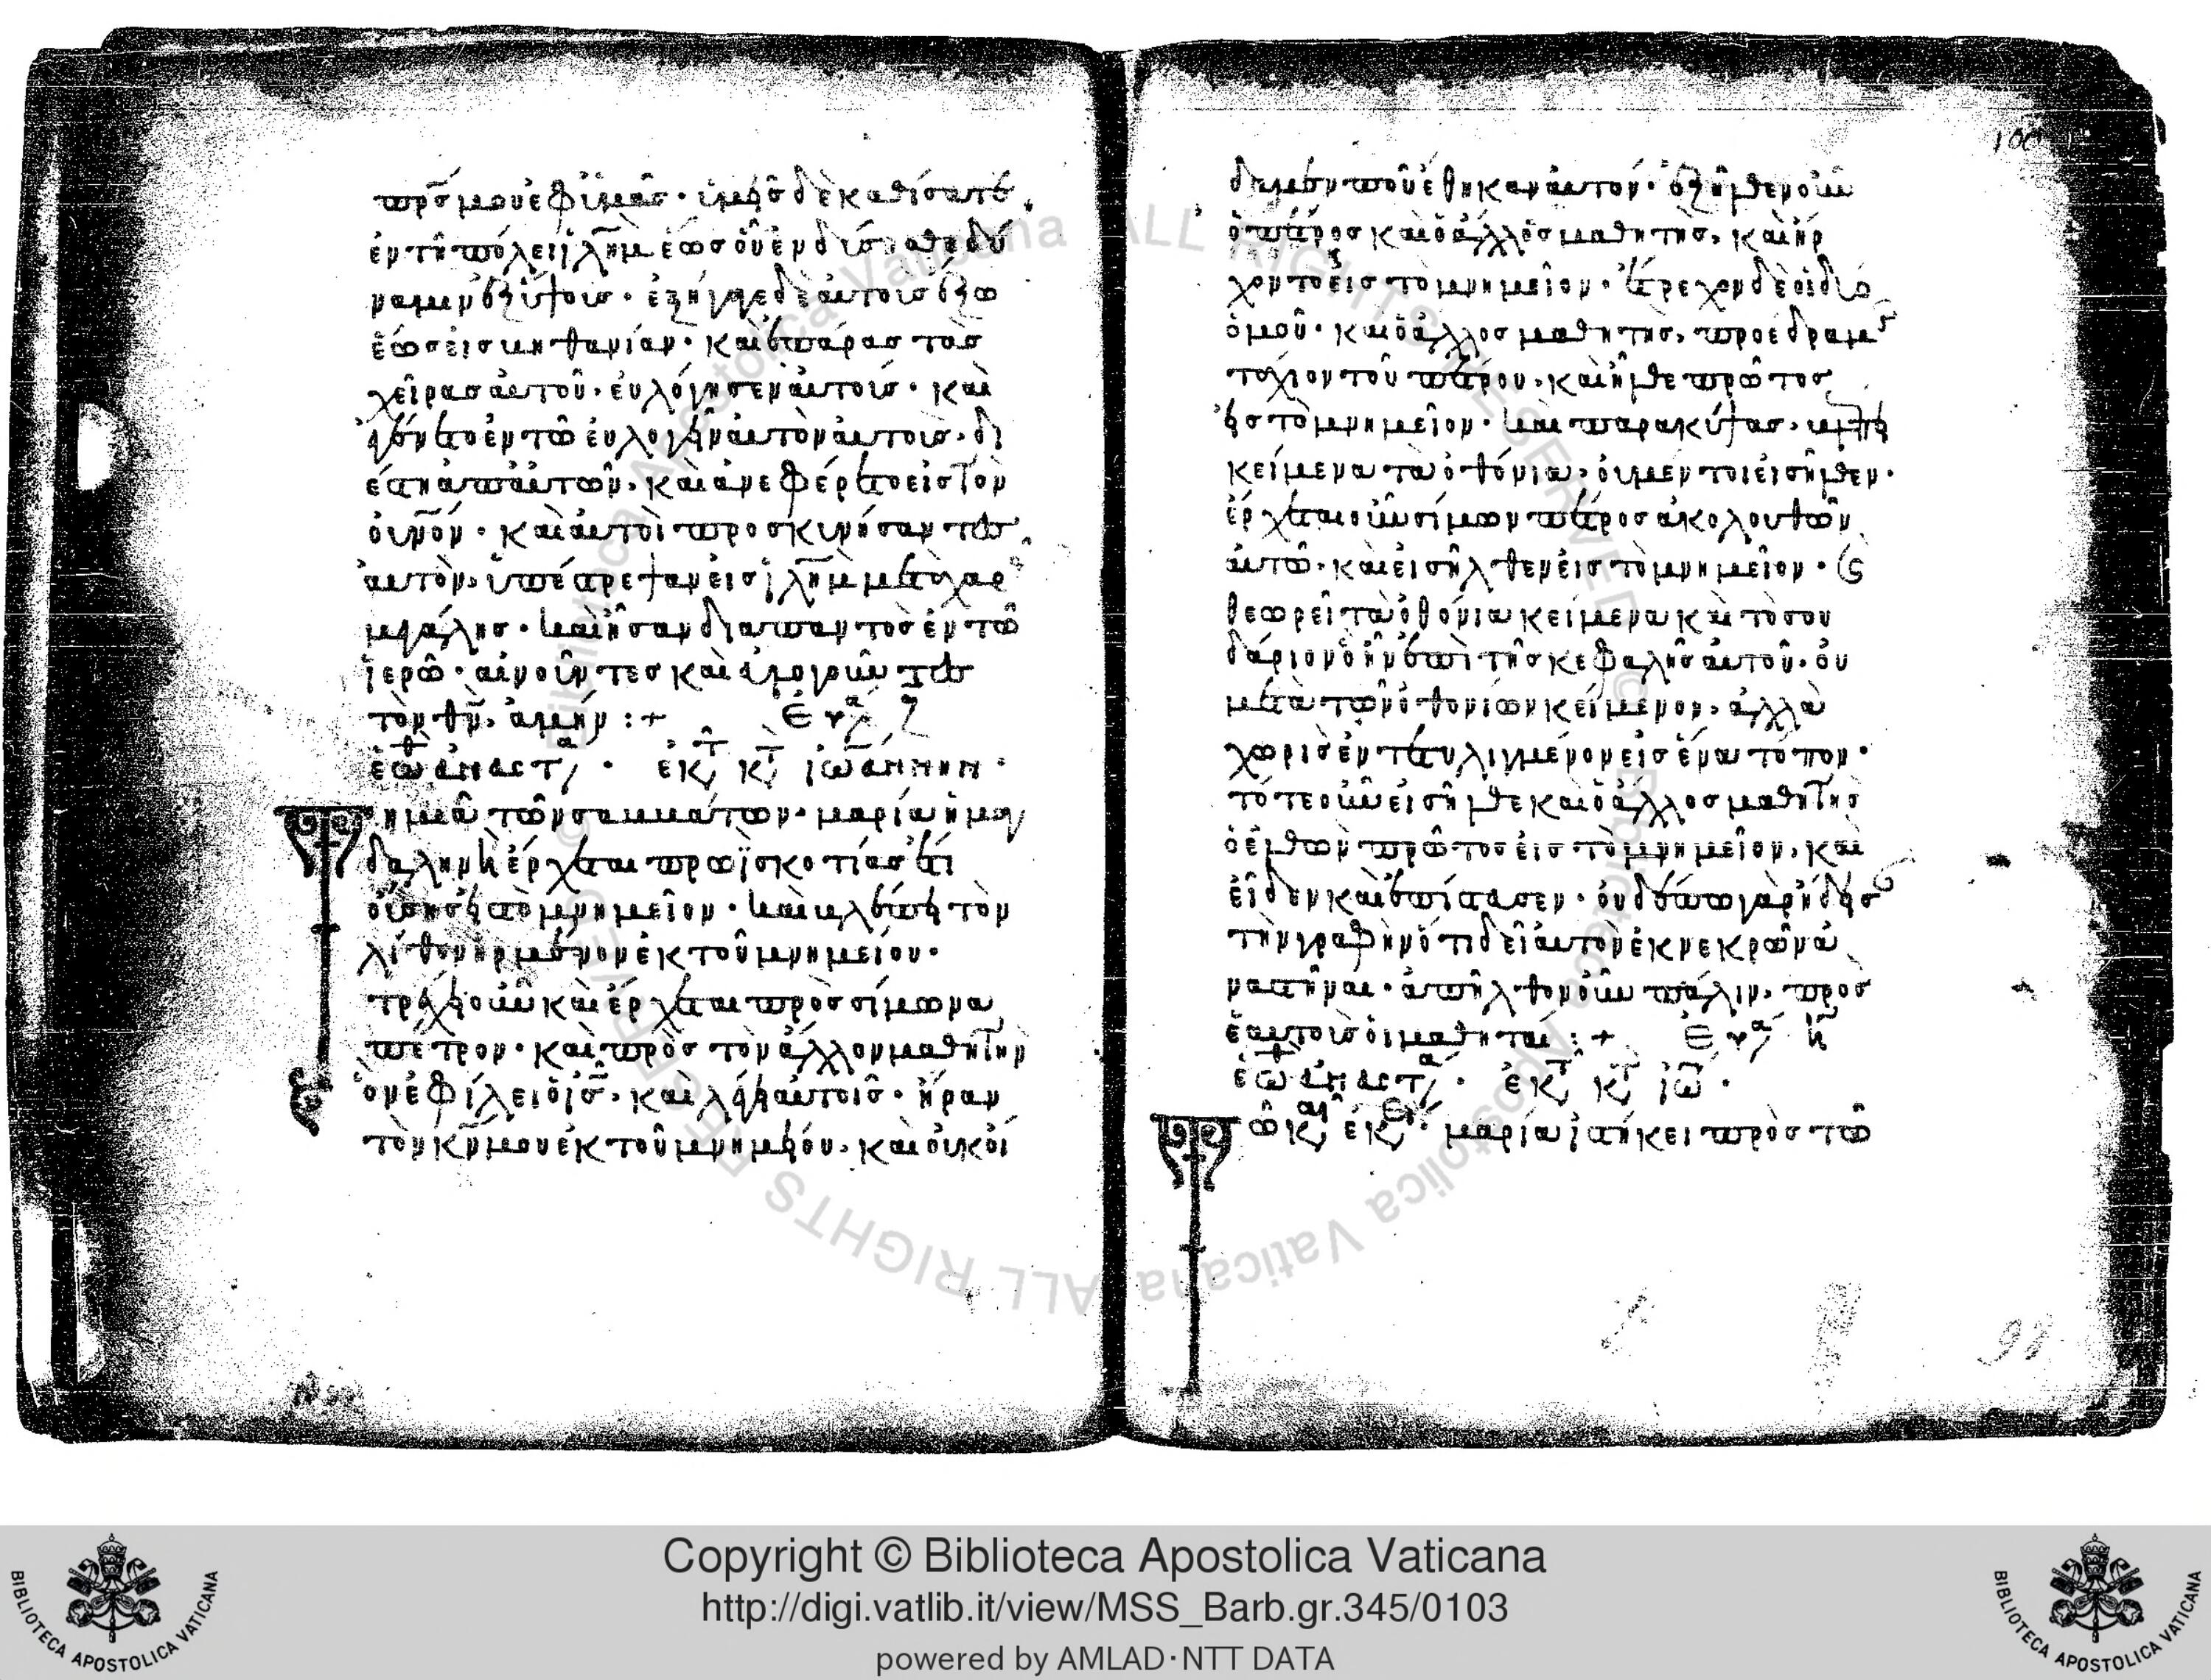 πρς μου ἐφ ὑμᾶς · ὑμεῖς δὲ καθίσατε
ἐν τῆ πόλει ἱλημ ἕως οὗ ἐνδύσησθε δύ
ναμιν ἐξ ὕψους · ἐξήγαγε δὲ αὐτοὺς ἔξω
ἕως εἰς βηθανίαν · καὶ ἐπάρας τὰς
χεῖρας αὐτοῦ · εὐλόγησεν αὐτούς · καὶ
ἐγένετο ἐν τῶ εὐλογεῖν αὐτὸν αὐτούς · δι
έστη ἀπ αὐτῶν · καὶ ἀνεφέρετο εἰς τὸν
οὐνόν · καὶ αὐτοὶ προσκυνήσαντες
αὐτὸν · ὑπέστρεψαν εἰς ἱλημ μετὰ χαρ
μεγάλης · καὶ ἦσαν διαπαντὸς ἐν τῶ
ἱερῶ · αἰνοῦντες καὶ εὐλογοῦντες
τὸν θν · ἀμήν : +
ἑωθ ἀναστ · ἐκ τ κτ ἰωάννην ·
Τῆ μιᾶ τῶν σαββάτων · μαρία ἡ μαγ
δαληνὴ ἔρχεται πρωῒ σκοτίας ἔτι
οὔσης εἰς τὸ μνημεῖον · καὶ βλέπει τὸν
λίθον ἠρμένον ἐκ τοῦ μνημείου ·
τρέχει οὖν καὶ ἔρχεται πρὸς σίμωνα
πέτρον · καὶ πρὸς τὸν ἄλλον μαθητὴν
ὃν ἐφίλει ὁ ἰς · καὶ λέγει αὐτοῖς · ἦραν
τὸν κν μου ἐκ τοῦ μνημείου · καὶ οὐκ οἴ
100
δαμεν ποῦ ἔθηκαν αὐτόν · ἐξῆλθεν οὖν
ὁ πέτρος καὶ ὁ ἄλλος μαθητής · καὶ ἤρ
χοντο εἰς τὸ μνημεῖον · ἔτρεχον δὲ οἱ δύο
ὁμοῦ · καὶ ὁ ἄλλος μαθητής · προέδραμε
τάχιον τοῦ πέτρου · καὶ ἦλθε πρῶτος
εἰς τὸ μνημεῖον · καὶ παρακύψας · βλέπει
κείμενα τὰ ὀθόνια · οὐ μέντοι εἰσῆλθεν ·
ἔρχεται οὖν σίμων πέτρος ἀκολουθῶν
αὐτῶ · καὶ εἰσῆλθεν εἰς τὸ μνημεῖον · καὶ
θεωρεῖ τὰ ὀθόνια κείμενα καὶ τὸ σου
δάριον ὃ ἦν ἐπὶ τῆς κεφαλῆς αὐτοῦ · οὐ
μετὰ τῶν ὀθονίων κείμενον · ἀλλὰ
χωρὶς ἐντετυλιγμένον εἰς ἕνα τόπον ·
τότε οὖν εἰσῆλθε καὶ ὁ ἄλλος μαθητὴς
ὁ ἐλθὼν πρῶτος εἰς τὸ μνημεῖον · καὶ
εἶδεν καὶ ἐπίστασεν · οὐδέπω γὰρ ἤδεισ
τὴν γραφὴν ὅτι δεῖ αὐτὸν ἐκ νεκρῶν ἀ
ναστῆναι · ἀπῆλθον οὖν πάλιν · πρὸς
ἑαυτοὺς οἱ μαθηταί : +
ἑωθ ἀναστ · ἐκ τ κτ ἰω ·
Τῶ καιρ ἐκ · μαρία ἱστήκει πρὸς τῶ
98
Copyright © Biblioteca Apostolica Vaticana
http://digi.vatlib.it/view/MSS_Barb.gr.345/0103
powered by AMLAD·NTT DATA
BIBLIOTECA APOSTOLICA VATICANA
BIBLIOTECA APOSTOLICA VATICANA